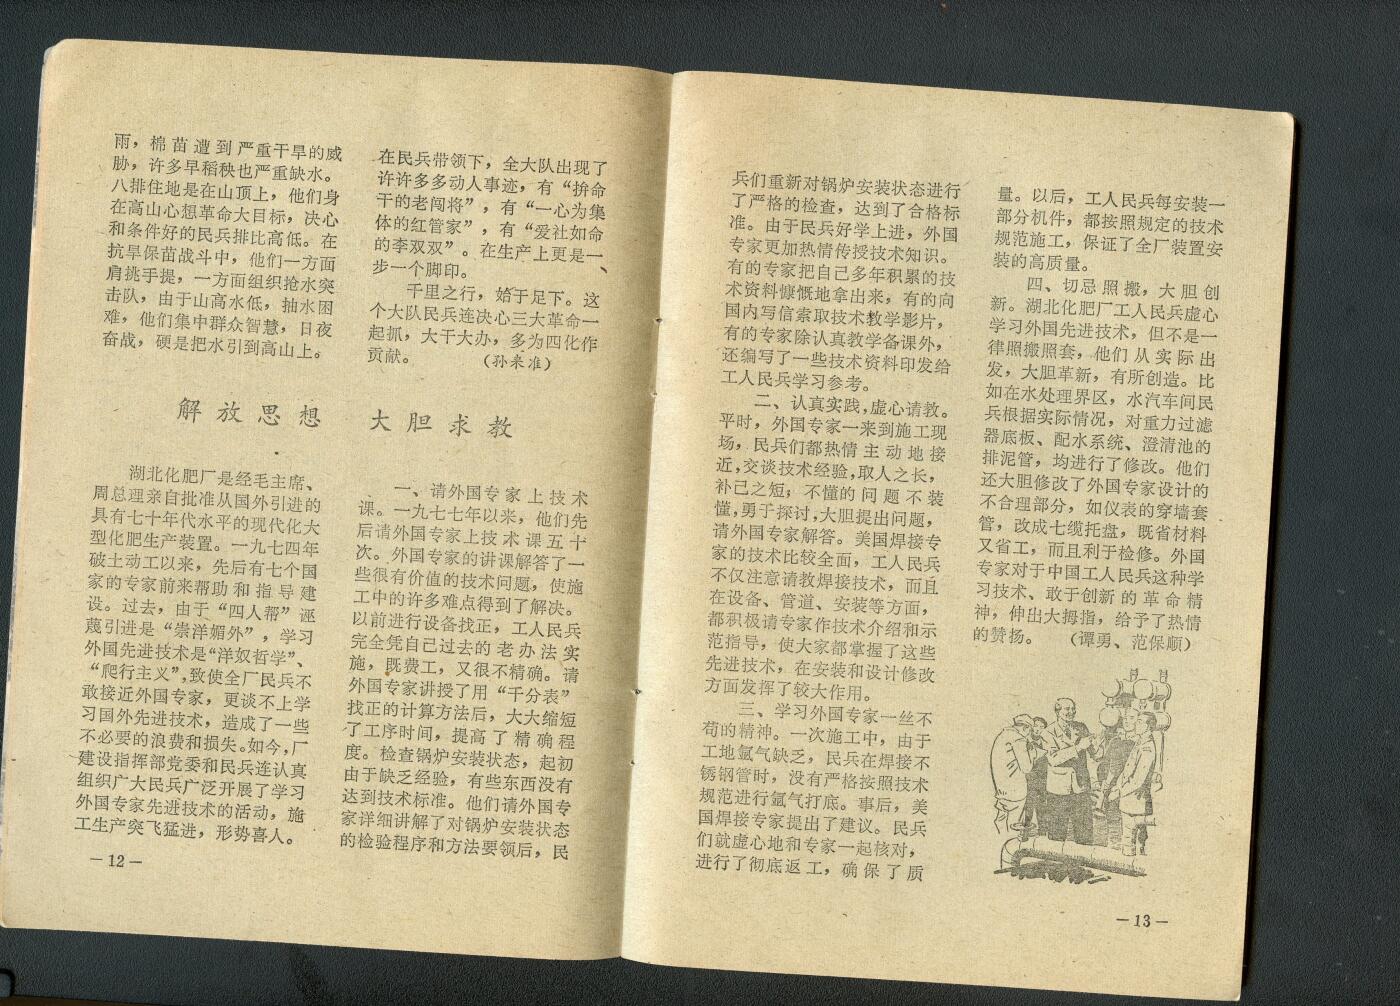 雨，棉苗遭到严重干旱的威
胁，许多早稻秧也严重缺水。
八排住地是在山顶上，他们身
在高山心想革命大目标，决心
和条件好的民兵排比高低。在
抗旱保苗战斗中，他们一方面
肩挑手提，一方面组织抢水突
击队，由于山高水低，抽水困
难，他们集中群众智慧，日夜
奋战，硬是把水引到高山上。
在民兵带领下，全大队出现了
许许多多动人事迹，有“拚命
干的老闯将”，有“一心为集
体的红管家”，有“爱社如命
的李双双”。在生产上更是一
步一个脚印。
千里之行，始于足下。这
个大队民兵连决心三大革命一
起抓，大干大办，多为四化作
贡献。（孙来准）
解放思想 大胆求教
湖北化肥厂是经毛主席、
周总理亲自批准从国外引进的
具有七十年代水平的现代化大
型化肥生产装置。一九七四年
破土动工以来，先后有七个国
家的专家前来帮助和指导建
设。过去，由于“四人帮”诬
蔑引进是“崇洋媚外”，学习
外国先进技术是“洋奴哲学”、
“爬行主义”，致使全厂民兵不
敢接近外国专家，更谈不上学
习国外先进技术，造成了一些
不必要的浪费和损失。如今，厂
建设指挥部党委和民兵连认真
组织广大民兵广泛开展了学习
外国专家先进技术的活动，施
工生产突飞猛进，形势喜人。
一、请外国专家上技术
课。一九七七年以来，他们先
后请外国专家上技术课五十
次。外国专家的讲课解答了一
些很有价值的技术问题，使施
工中的许多难点得到了解决。
以前进行设备找正，工人民兵
完全凭自己过去的老办法实
施，既费工，又很不精确。请
外国专家讲授了用“千分表”
找正的计算方法后，大大缩短
了工序时间，提高了精确程
度。检查锅炉安装状态，起初
由于缺乏经验，有些东西没有
达到技术标准。他们请外国专
家详细讲解了对锅炉安装状态
的检验程序和方法要领后，民
—12—
兵们重新对锅炉安装状态进行
了严格的检查，达到了合格标
准。由于民兵好学上进，外国
专家更加热情传授技术知识。
有的专家把自己多年积累的技
术资料慷慨地拿出来，有的向
国内写信索取技术教学影片，
有的专家除认真教学备课外，
还编写了一些技术资料印发给
工人民兵学习参考。
二、认真实践，虚心请教。
平时，外国专家一来到施工现
场，民兵们都热情主动地接
近，交谈技术经验，取人之长，
补己之短，不懂的问题不装
懂，勇于探讨，大胆提出问题，
请外国专家解答。美国焊接专
家的技术比较全面，工人民兵
不仅注意请教焊接技术，而且
在设备、管道、安装等方面，
都积极请专家作技术介绍和示
范指导，使大家都掌握了这些
先进技术，在安装和设计修改
方面发挥了较大作用。
三、学习外国专家一丝不
苟的精神。一次施工中，由于
工地氩气缺乏，民兵在焊接不
锈钢管时，没有严格按照技术
规范进行氩气打底。事后，美
国焊接专家提出了建议。民兵
们就虚心地和专家一起核对，
进行了彻底返工，确保了质
量。以后，工人民兵每安装一
部分机件，都按照规定的技术
规范施工，保证了全厂装置安
装的高质量。
四、切忌照搬，大胆创
新。湖北化肥厂工人民兵虚心
学习外国先进技术，但不是一
律照搬照套，他们从实际出
发，大胆革新，有所创造。比
如在水处理界区，水汽车间民
兵根据实际情况，对重力过滤
器底板、配水系统、澄清池的
排泥管，均进行了修改。他们
还大胆修改了外国专家设计的
不合理部分，如仪表的穿墙套
管，改成七缆托盘，既省材料
又省工，而且利于检修。外国
专家对于中国工人民兵这种学
习技术、敢于创新的革命精
神，伸出大拇指，给予了热情
的赞扬。（谭勇、范保顺）
—13—